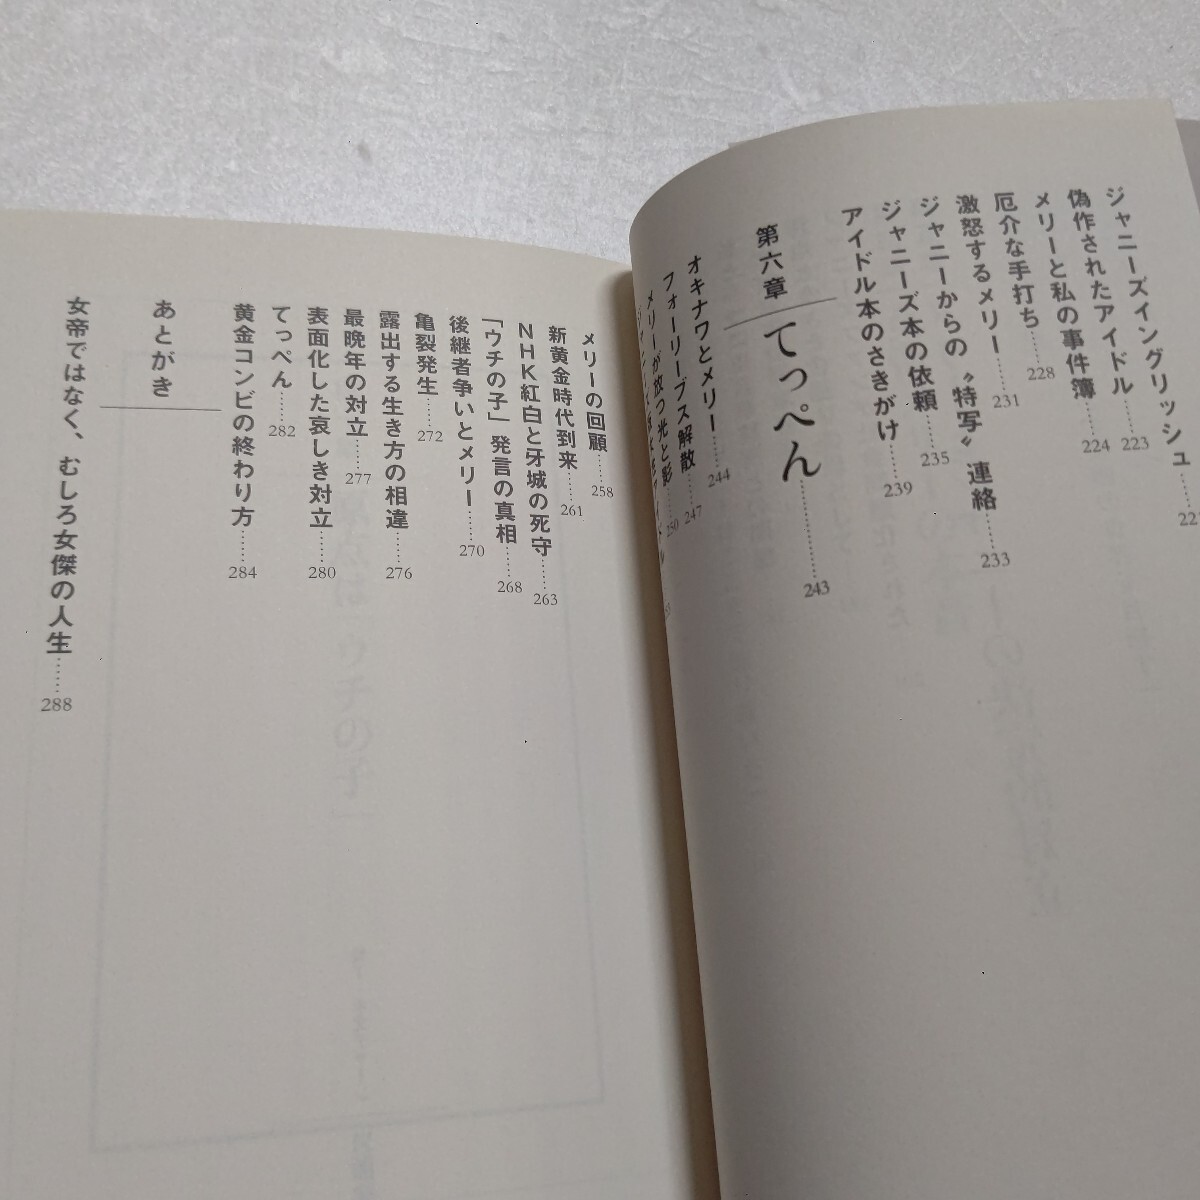 ジャニーズイングリッシュ……22
偽作されたアイドル……223
メリーと私の事件簿……224
厄介な手打ち……228
激怒するメリー……231
ジャニーからの〝特写〟連絡……233
ジャニーズ本の依頼……235
アイドル本のさきがけ……239
第六章 てっぺん……243
オキナワとメリー……244
フォーリーブス解散……247
メリーが放つ光と影……250
メリーの回顧……258
新黄金時代到来……261
NHK紅白と牙城の死守……263
「ウチの子」発言の真相……268
後継者争いとメリー……270
亀裂発生……272
露出する生き方の相違……276
最晩年の対立……277
表面化した哀しき対立……280
てっぺん……282
黄金コンビの終わり方……284
あとがき
女帝ではなく、むしろ女傑の人生……288